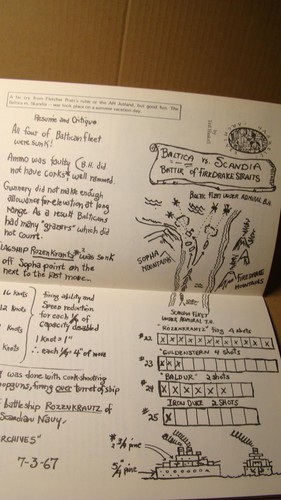 A far cry from Fletcher Pratt's rules or the AHI Jutland, but good fun. The
Baltica vs. Scandia was took place on a summer vacation day.
by
Resume and Critique
All four of Baltican fleet
were sunk!
Ammo was faulty B.H. did
not have corks well rammed.
Gunnery did not make enough
allowance for elevation at long
range. As a result Balticans
had many "grazers" which did
not count.
FLAGSHIP ROZENKRANTZ was sunk
off Sopha point on the
next to the last move
BALTICA vs. SCANDIA
BATTLE OF FIREDRAKE STRAITS
BALTIC FLEET UNDER ADMIRAL B.H.
SOPHA
MOUNTAINS
FIREDRAKE
MOUNTAINS
SCANDIA FLEET
UNDER ADMIRAL T.H.
16 Knots
12 Knots
Knots
Knots
firing ability and
Speed reduction
for each 1/4 of
capacity disabled
1 Knot = 1"
∴ each 1/4 of move
was done with cork-shooting
popguns, firing over turret of ship
battleship ROZENKRANTZ of
Scandian Navy.
ARCHIVES"
7-3-67
#22 "ROZENKRANTZ" flag 4 shots
X X X X X X X X X X X X
#23 "GOLDENSTERN" 4 shots
X X
#24 "BALDUR" 2 shots
X X X X X X
#25 IRON DUKE 2 SHOTS
X X
3/4 pine
5/4 pine